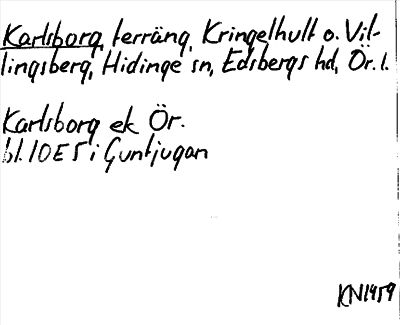 Karlsborg, terräng, Kringelhult o. Vil-
lingsberg, Hidinge sn, Edsbergs hd, Ör. l.
Karlsborg ek Ör.
bl. 10 E 5 i Guntjugan
KN1959